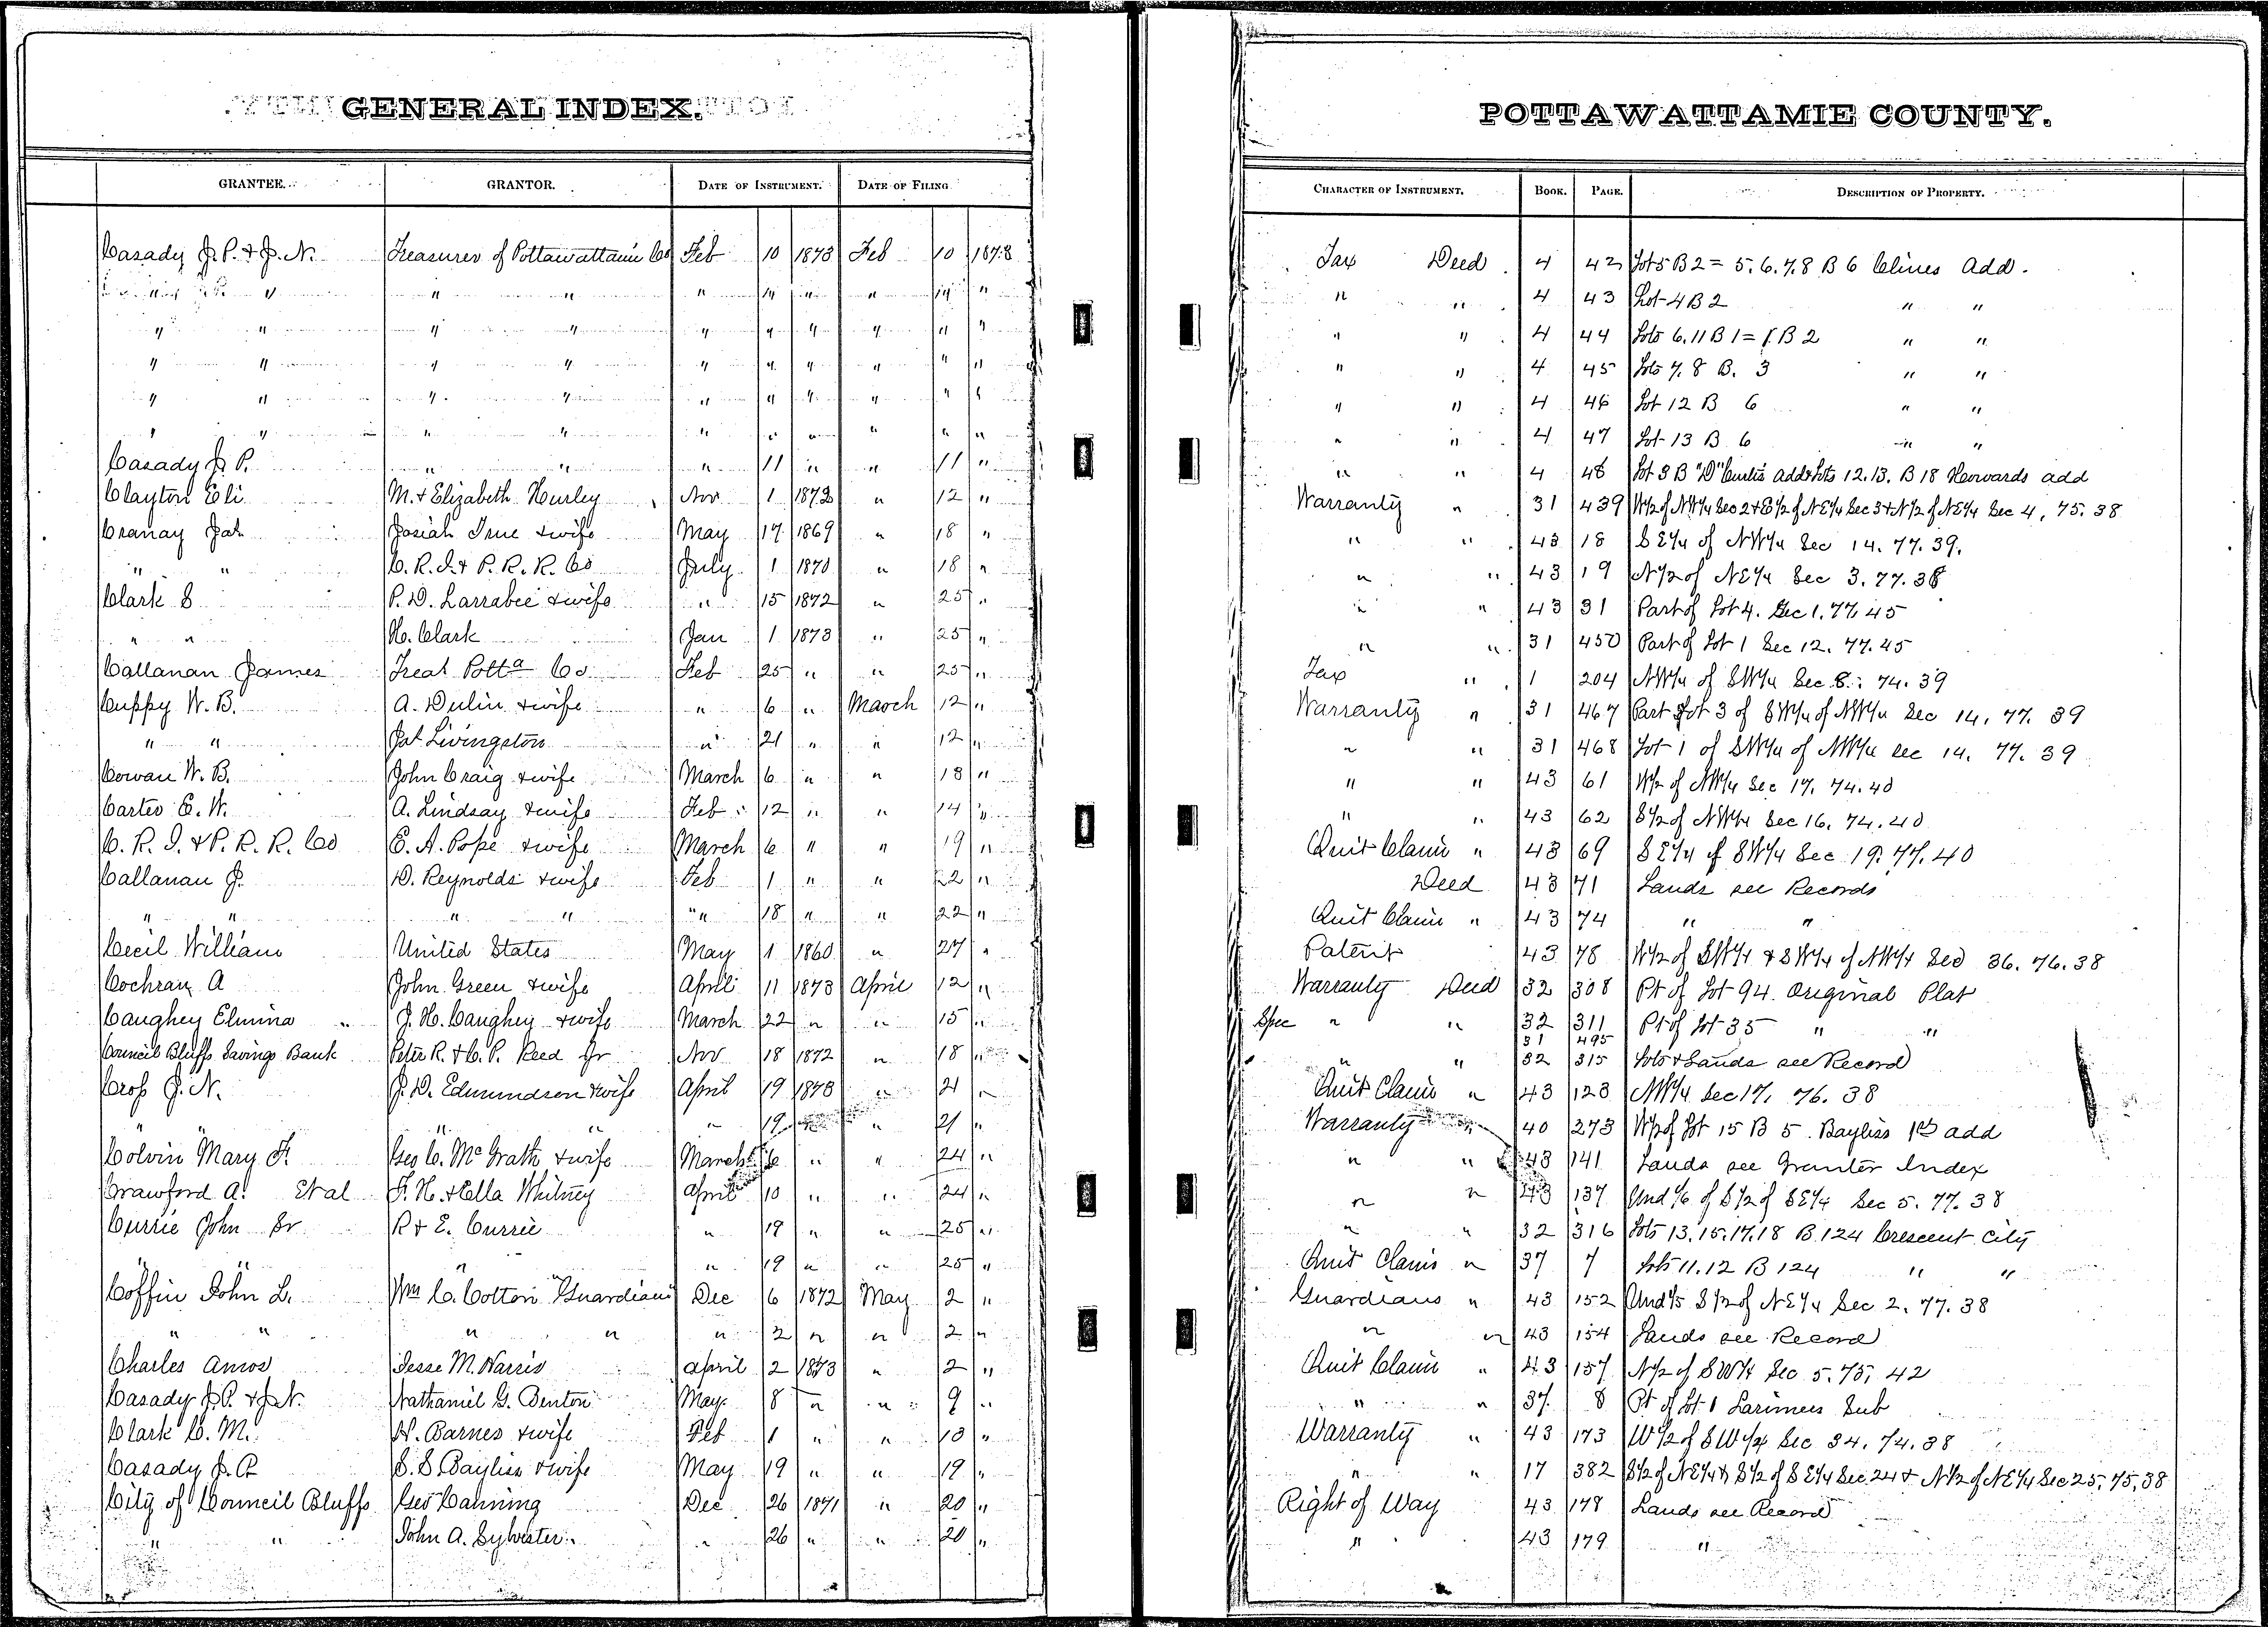 GENERAL INDEX.
POTTAWATTAMIE COUNTY.
GRANTEE. GRANTOR. DATE OF INSTRUMENT. DATE OF FILING. CHARACTER OF INSTRUMENT. BOOK. PAGE. DESCRIPTION OF PROPERTY.
Casady J. P. & J. N. Treasurer of Pottawattamie Co Feb 10 1873 Feb 10 1873 Tax Deed 4 42 Lot 5 B 2 = 5. 6. 7. 8 B 6 Clines Add.
" " " " 14 " " 14 " " " 4 43 Lot 4 B 2 " "
" " " " " " " " " " " " 4 44 Lots 6. 11 B 1 = 1. B 2 " "
" " " " " " " " " " " " 4 45 Lots 7. 8 B. 3 " "
" " " " " " " " " " " " 4 46 Lot 12 B 6 " "
" " " " " " " " " " " " 4 47 Lot 13 B 6 " "
Casady J. P. " " " 11 " " 11 " " " 4 48 Lot 3 B "D" Curtis add & Lots 12. 13. B 18 Howards add
Clayton Eli M. & Elizabeth Hurley Nov 1 1872 " 12 " Warranty " 31 439 W½ of NW¼ Sec 2 & E½ of NE¼ Sec 3 & N½ of NE¼ Sec 4, 75. 38
Cranay Jas Josiah True & wife May 17 1869 " 18 " " " 43 18 SE¼ of NW¼ Sec 14. 77. 39.
" " C. R. I. & P. R. R. Co July 1 1870 " 18 " " " 43 19 N½ of NE¼ Sec 3. 77. 38
Clark S P. D. Larrabee & wife " 15 1872 " 25 " " " 43 31 Part of Lot 4. Sec 1. 77. 45
" " H. Clark Jan 1 1873 " 25 " " " 31 450 Part of Lot 1 Sec 12. 77. 45
Callanan James Treas Potta Co Feb 25 " " 25 " Tax " 1 204 NW¼ of SW¼ Sec 8. 74. 39
Cuppy W. B. A. Dulin & wife " 6 " March 12 " Warranty " 31 467 Part Lot 3 of SW¼ of NW¼ Sec 14. 77. 39
" " Jas Livingston " 21 " " 12 " " " 31 468 Lot 1 of SW¼ of NW¼ Sec 14. 77. 39
Cowan W. B. John Craig & wife March 6 " " 18 " " " 43 61 W½ of NW¼ Sec 17. 74. 40
Carter E. W. A. Lindsay & wife Feb 12 " " 14 " " " 43 62 S½ of NW¼ Sec 16. 74. 40
C. R. I. & P. R. R. Co E. A. Pope & wife March 6 " " 19 " Quit Claim " 43 69 SE¼ of SW¼ Sec 19. 77. 40
Callanan J. D. Reynolds & wife Feb 1 " " 22 " Deed 43 71 Lands see Records
" " " " " 18 " " 22 " Quit Claim " 43 74 " "
Cecil William United States May 1 1860 " 27 " Patent 43 78 W½ of SW¼ & SW¼ of NW¼ Sec 36. 76. 38
Cochran A John Green & wife April 11 1873 April 12 " Warranty Deed 32 308 Pt of Lot 94. Original Plat
Caughey Elmina J. H. Caughey & wife March 22 " " 15 " Spec " " 32 311 Pt of Lot 35 " "
31 495
Council Bluffs Savings Bank Peter R. & C. P. Reed Jr Nov 18 1872 " 18 " " " 32 315 Lots & Lands see Record
Cross J. N. J. D. Edmundson & wife April 19 1873 " 21 " Quit Claim " 43 123 NW¼ Sec 17. 76. 38
" " " " 19 " 21 " Warranty " 40 273 W½ of Lot 15 B 5. Bayliss 1st add
Colvin Mary F. Geo C. McGrath & wife March 6 " " 24 " " " 43 141 Lands see Grantor Index
Crawford A. Et al F. H. & Ella Whitney April 10 " " 24 " " " 43 137 Und 1/6 of S½ of SE¼ Sec 5. 77. 38
Currie John Sr R & E. Currie " 19 " " 25 " " " 32 316 Lots 13. 15. 17. 18 B. 124 Crescent City
" " " 19 " " 25 " Quit Claim " 37 7 Lots 11. 12 B 124 " "
Coffin John L. Wm C. Cotton Guardian Dec 6 1872 May 2 " Guardians " 43 152 Und 1/5 S½ of NE¼ Sec 2. 77. 38
" " " " " 2 " " 2 " " " 43 154 Lands see Record
Charles Amos Jesse M. Harris April 2 1873 " 2 " Quit Claim " 43 157 N½ of SW¼ Sec 5. 75. 42
Casady J. P. & J. N. Nathaniel G. Benton May 8 " " 9 " " " 37 8 Pt of Lot 1 Larimers Sub
Clark C. M. N. Barnes & wife Feb 1 " " 13 " Warranty " 43 173 W½ of SW¼ Sec 34. 74. 38
Casady J. P. S. S. Bayliss & wife May 19 " " 19 " " " 17 382 S½ of NE¼ & S½ of SE¼ Sec 24 & N½ of NE¼ Sec 25. 75, 38
City of Council Bluffs Geo Canning Dec 26 1871 " 20 " Right of Way 43 178 Lands see Record
" " John A. Sylvester " 26 " " 20 " " 43 179 "